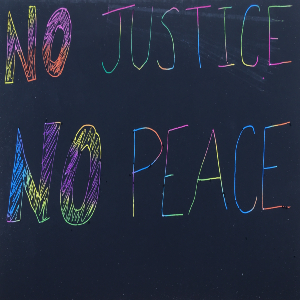 NO JUSTICE
NO PEACE